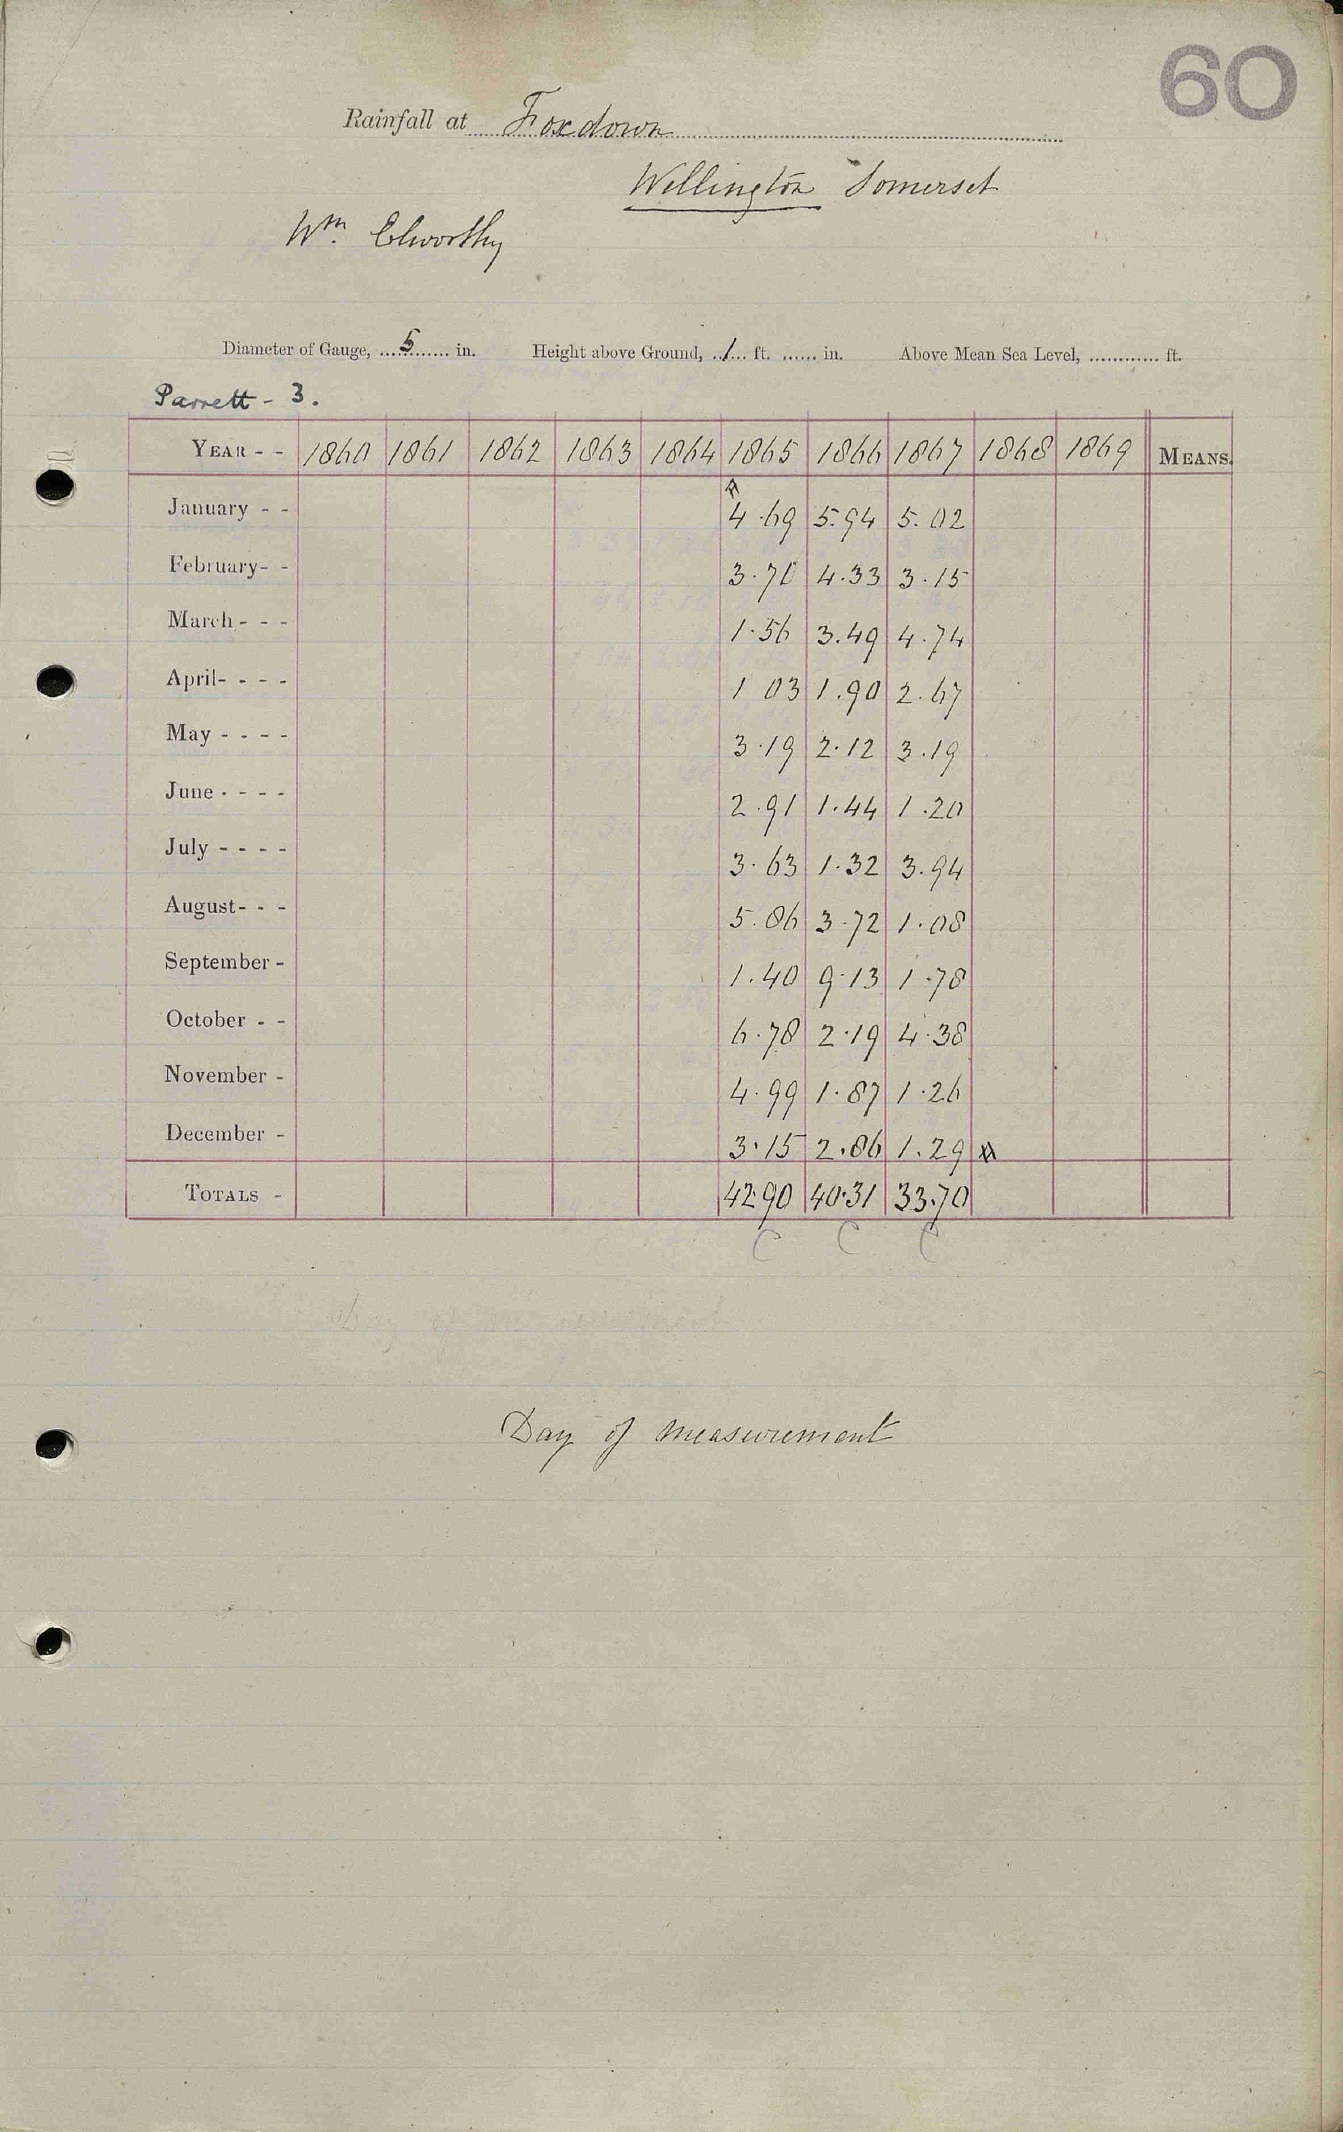 60
Rainfall at Foxdown
Wellington Somerset
Wm. Elworthy
Diameter of Gauge, 5 in. Height above Ground, 1 ft. in. Above Mean Sea Level, ft.
Parrett - 3.
YEAR - - 1860 1861 1862 1863 1864 1865 1866 1867 1868 1869 MEANS.
January - - 4.69 5.94 5.02
February - - 3.71 4.33 3.15
March - - - 1.56 3.49 4.74
April - - - - 1 03 1.90 2.67
May - - - - 3.19 2.12 3.19
June - - - - 2.91 1.44 1.20
July - - - - 3.63 1.32 3.94
August - - - 5.86 3.72 1.08
September - 1.40 9.13 1.78
October - - 6.78 2.19 4.38
November - 4.99 1.87 1.26
December - 3.15 2.86 1.29
TOTALS - 42.90 40.31 33.70
C C C
Day of measurement
Day of measurement